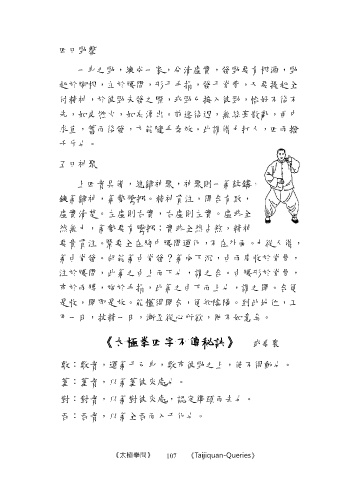 四曰勁整
一身之勁，練成一家，分清虛實，發勁要有根源，勁
起於脚根，主於腰間，形於手指，發於脊骨，又要提起全
付精神，於彼勁將發未發之際，我勁
先，如皮燃火，如泉湧出，前進後退，無絲毫散亂，曲中
求直，蓄而後發，方能隨手奏效，此謂借力打人，四兩撥
千斤也。
五曰神聚
上四者具備，總歸神聚，神聚則一氣鼓鑄，
鍊氣歸神，氣勢騰挪，精神貫注，開合有致，
虛實清楚，左虛則右實，右虛則左實，虛非全
然無力，氣勢要有騰挪；實非全然占煞，精神
要貴貫注。緊要全在胸中腰間運化，不在外面。力從人借，
氣由脊發，胡能氣由脊發？氣向下沉，由兩肩收於脊骨，
注於腰間，此氣之由上而下也，謂之合。由腰形於脊骨，
布於兩膊，施於手指，此氣之由下而上也，謂之開。合便
是收，開即是放。能懂得開合，便知陰陽。到此地位，工
用一日，技精一日，漸至從心所欲，罔不如意矣。
《太極拳四字不傳秘訣》　武禹襄
敷：敷者，運氣於己身，敷布彼勁之上，使不得動也。
蓋：蓋者，以氣蓋彼來處也。
對：對者，以氣對彼來處，認定準頭而去也。
吞：吞者，以氣全吞而入於化也。
《太極拳問》　107　《Taijiquan-Queries》